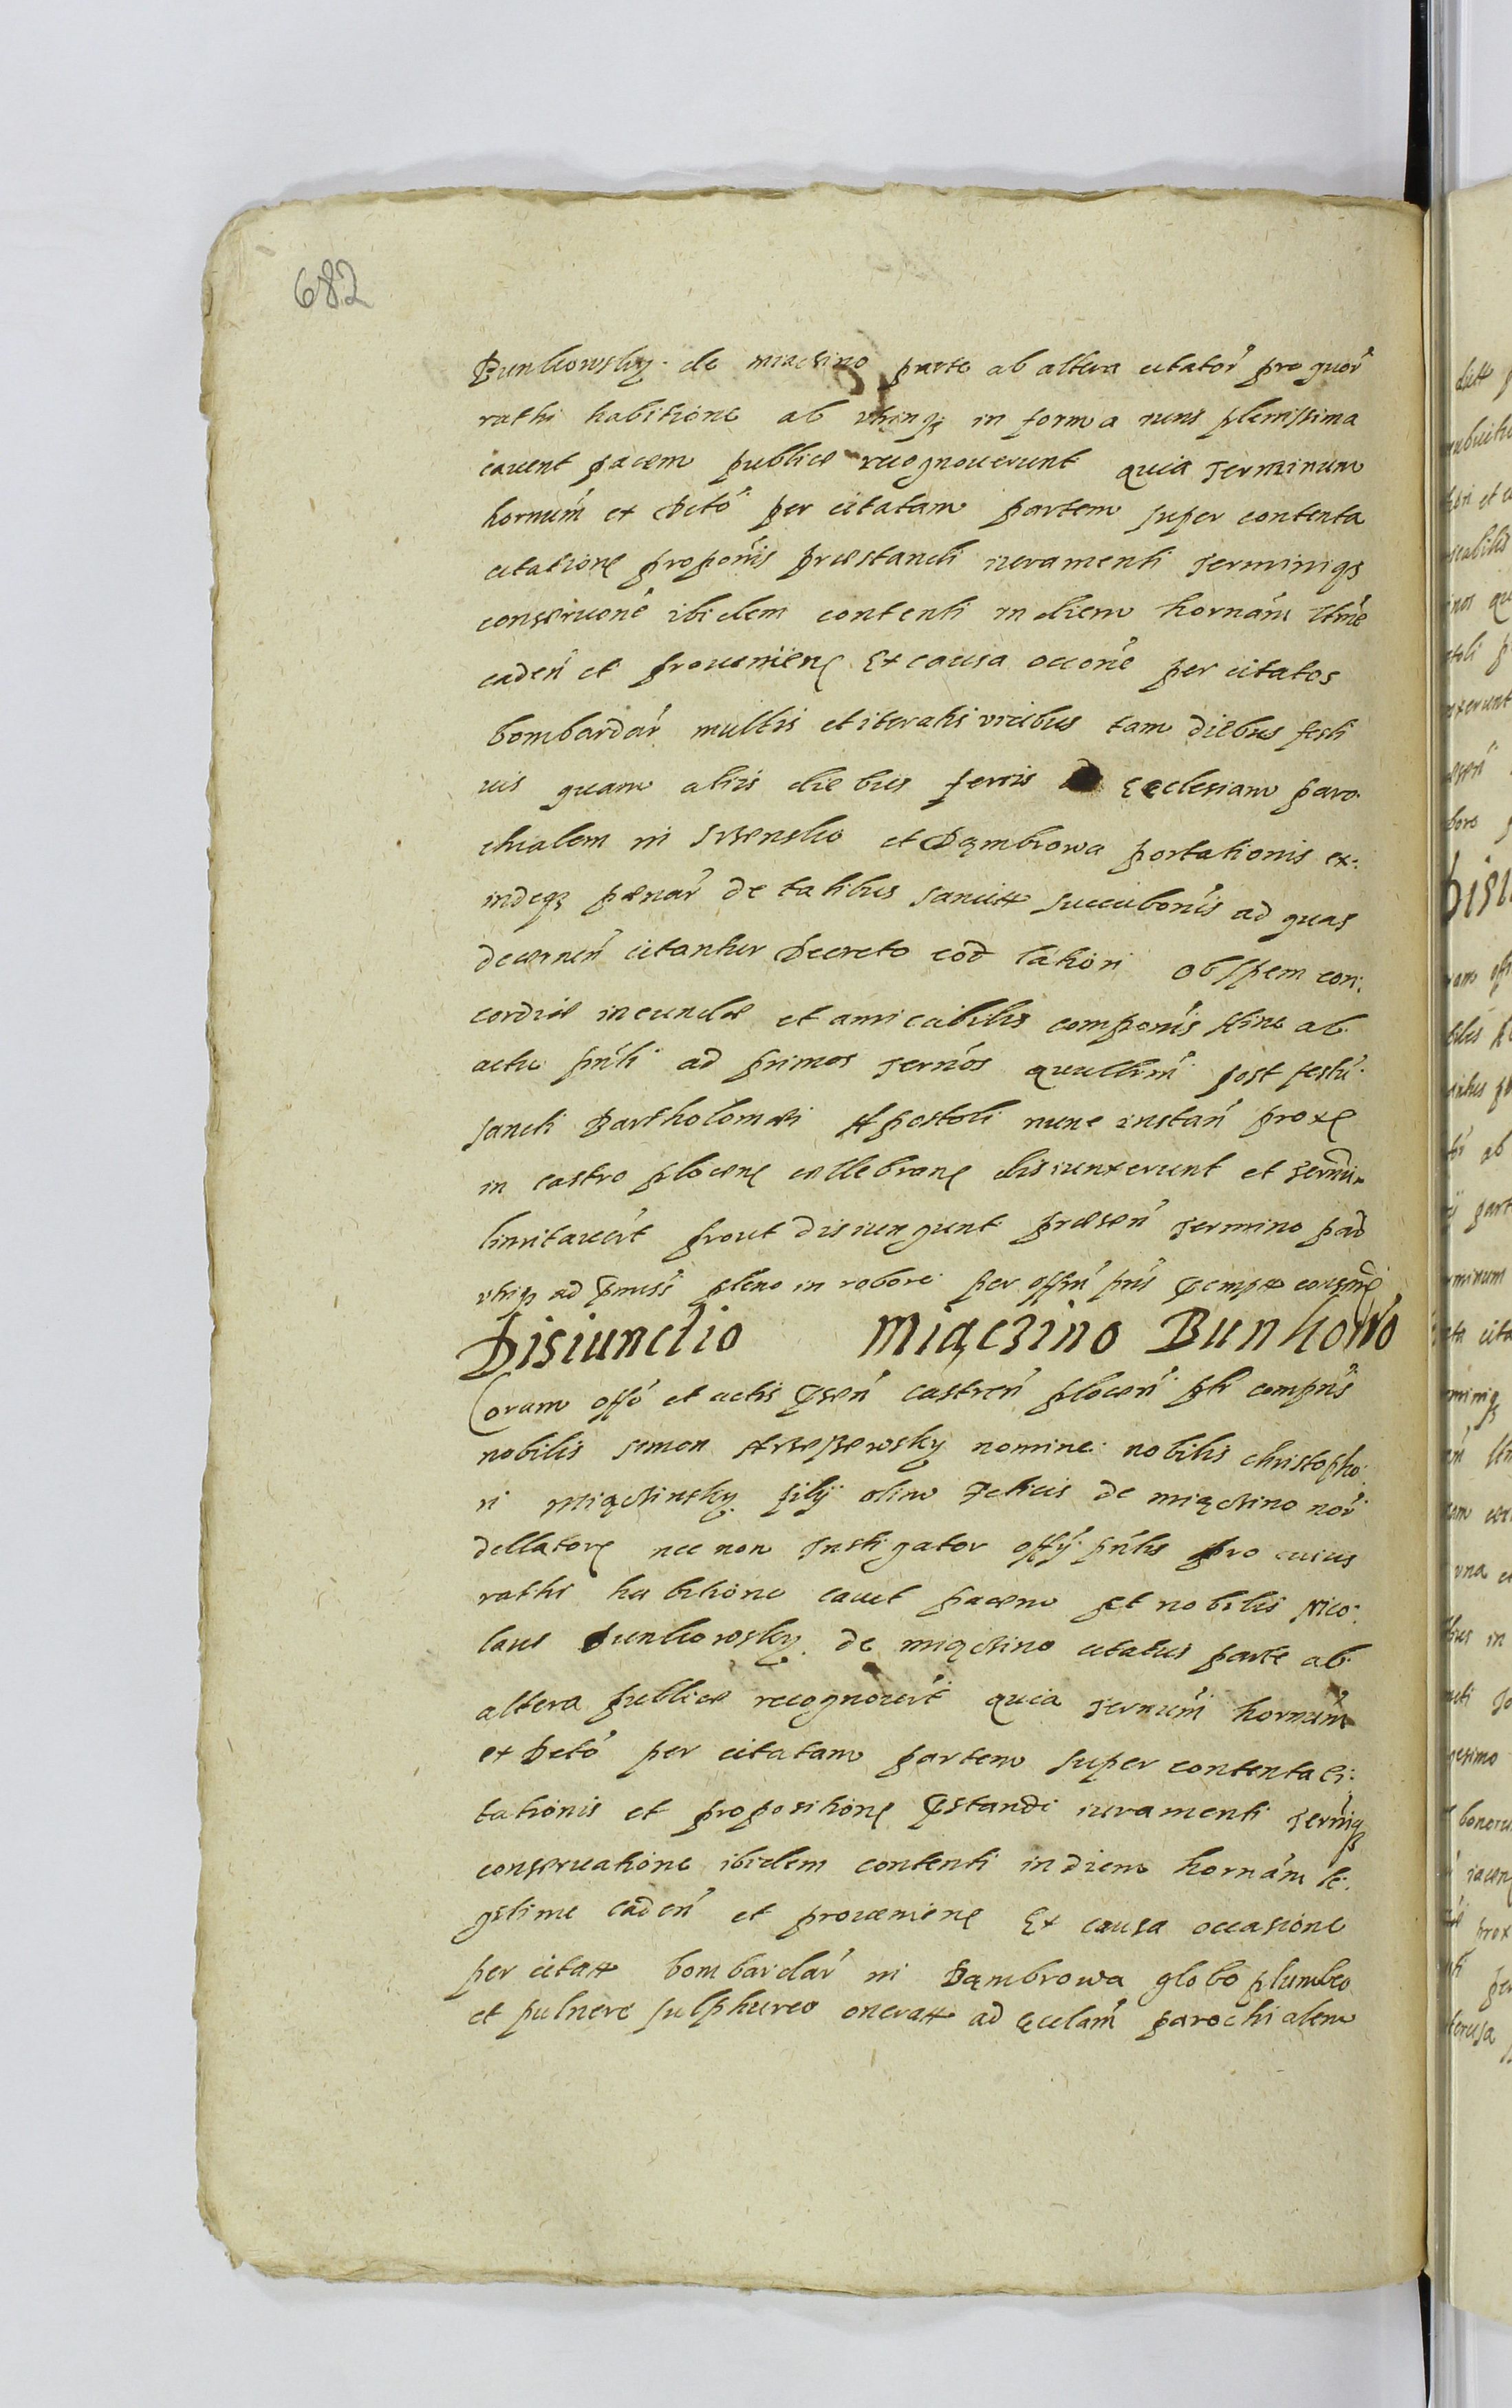 682
Bunkowsky de miaczino parte ab altera citator pro quor
rathi habitione ab vtrinqz in forma iuris plenissima
cauent pacem publice recognouerunt quia Terminum
hornum ex Dcto per citatam partem super contenta
citatione proponis præstandi iuramenti Terminiqz
conseruone ibidem contenti in diem hornam ltme
caden et prouenien Ex causa occone per citatos
bombardar multis et iteratis vicibus tam diebus festi
uis quam aliis diebus feriis Ecclesiam paro
chialem in et Dąmbrowa portationis ex
indeqz pænar de talibus sancitt succubonis ad quas
decernen citantur Decreto eod latiori Ob spem con
cordiæ ineundæ et amicabilis componis hinc ab
actu pnti ad primos Termos quellrm post festu
sancti Bartholomæi Apostoli nunc instan prox
in castro plocen cællebran disiunxerunt et
limitauert prout disiungunt præsen Termino par
vtriqz ad pmiss pleno in robore per offm pns
Disiunctio Miączino Bunkowo
Coram offo et actis psen castren plocen ptr comprns
nobilis Simon nomine nobilis christopho
ri Miączinsky filij olim Felicis de miączino nor
dellator nec non Instigator offij pntis pro cuius
rathi habitione cauet pacem et nobilis Nico
laus Bunkowsky de miączino citatus parte ab
altera publice recognouert quia Termum hornum
ex Dcto per citatam partem super contenta ci
tationis et proposition pstandi iuramenti Termiqz
conseruatione ibidem contenti in diem hornam le
gitime caden et prouenien Ex causa occasione
per citatt bombardar in Dąmbrowa globo plumbeo
et puluere sulphureo oneratt ad Ecclam parochialem